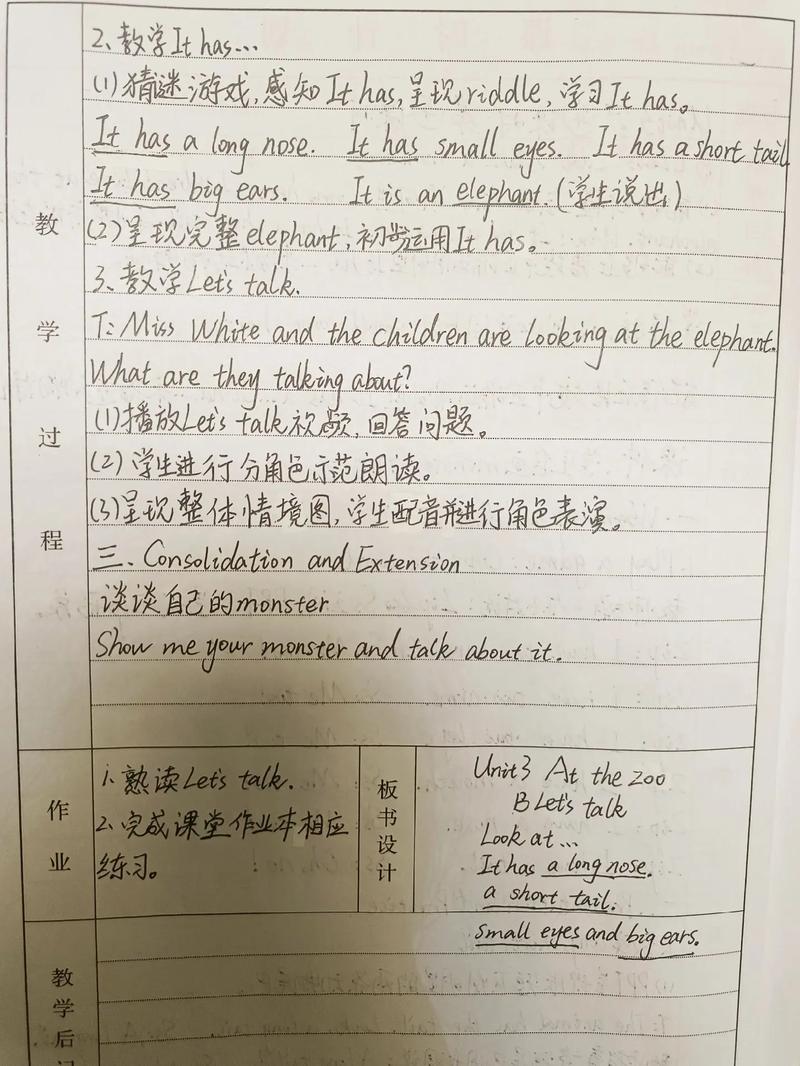 教学过程
2、教学It has…
(1)猜谜游戏,感知It has,呈现riddle,学习It has。
It has a long nose. It has small eyes. It has a short tail.
It has big ears. It is an elephant.(学生说出)
(2)呈现完整elephant,初步运用It has。
3、教学Let's talk.
T: Miss White and the children are looking at the elephant.
What are they talking about?
(1)播放Let's talk视频,回答问题。
(2)学生进行分角色示范朗读。
(3)呈现整体情境图,学生配音并进行角色表演。
三、Consolidation and Extension
谈谈自己的monster
Show me your monster and talk about it.
作业
1、熟读Let's talk.
2、完成课堂作业本相应
练习。
板书设计
Unit3 At the zoo
B Let's talk
Look at…
It has a long nose.
a short tail.
small eyes and big ears.
教学后记